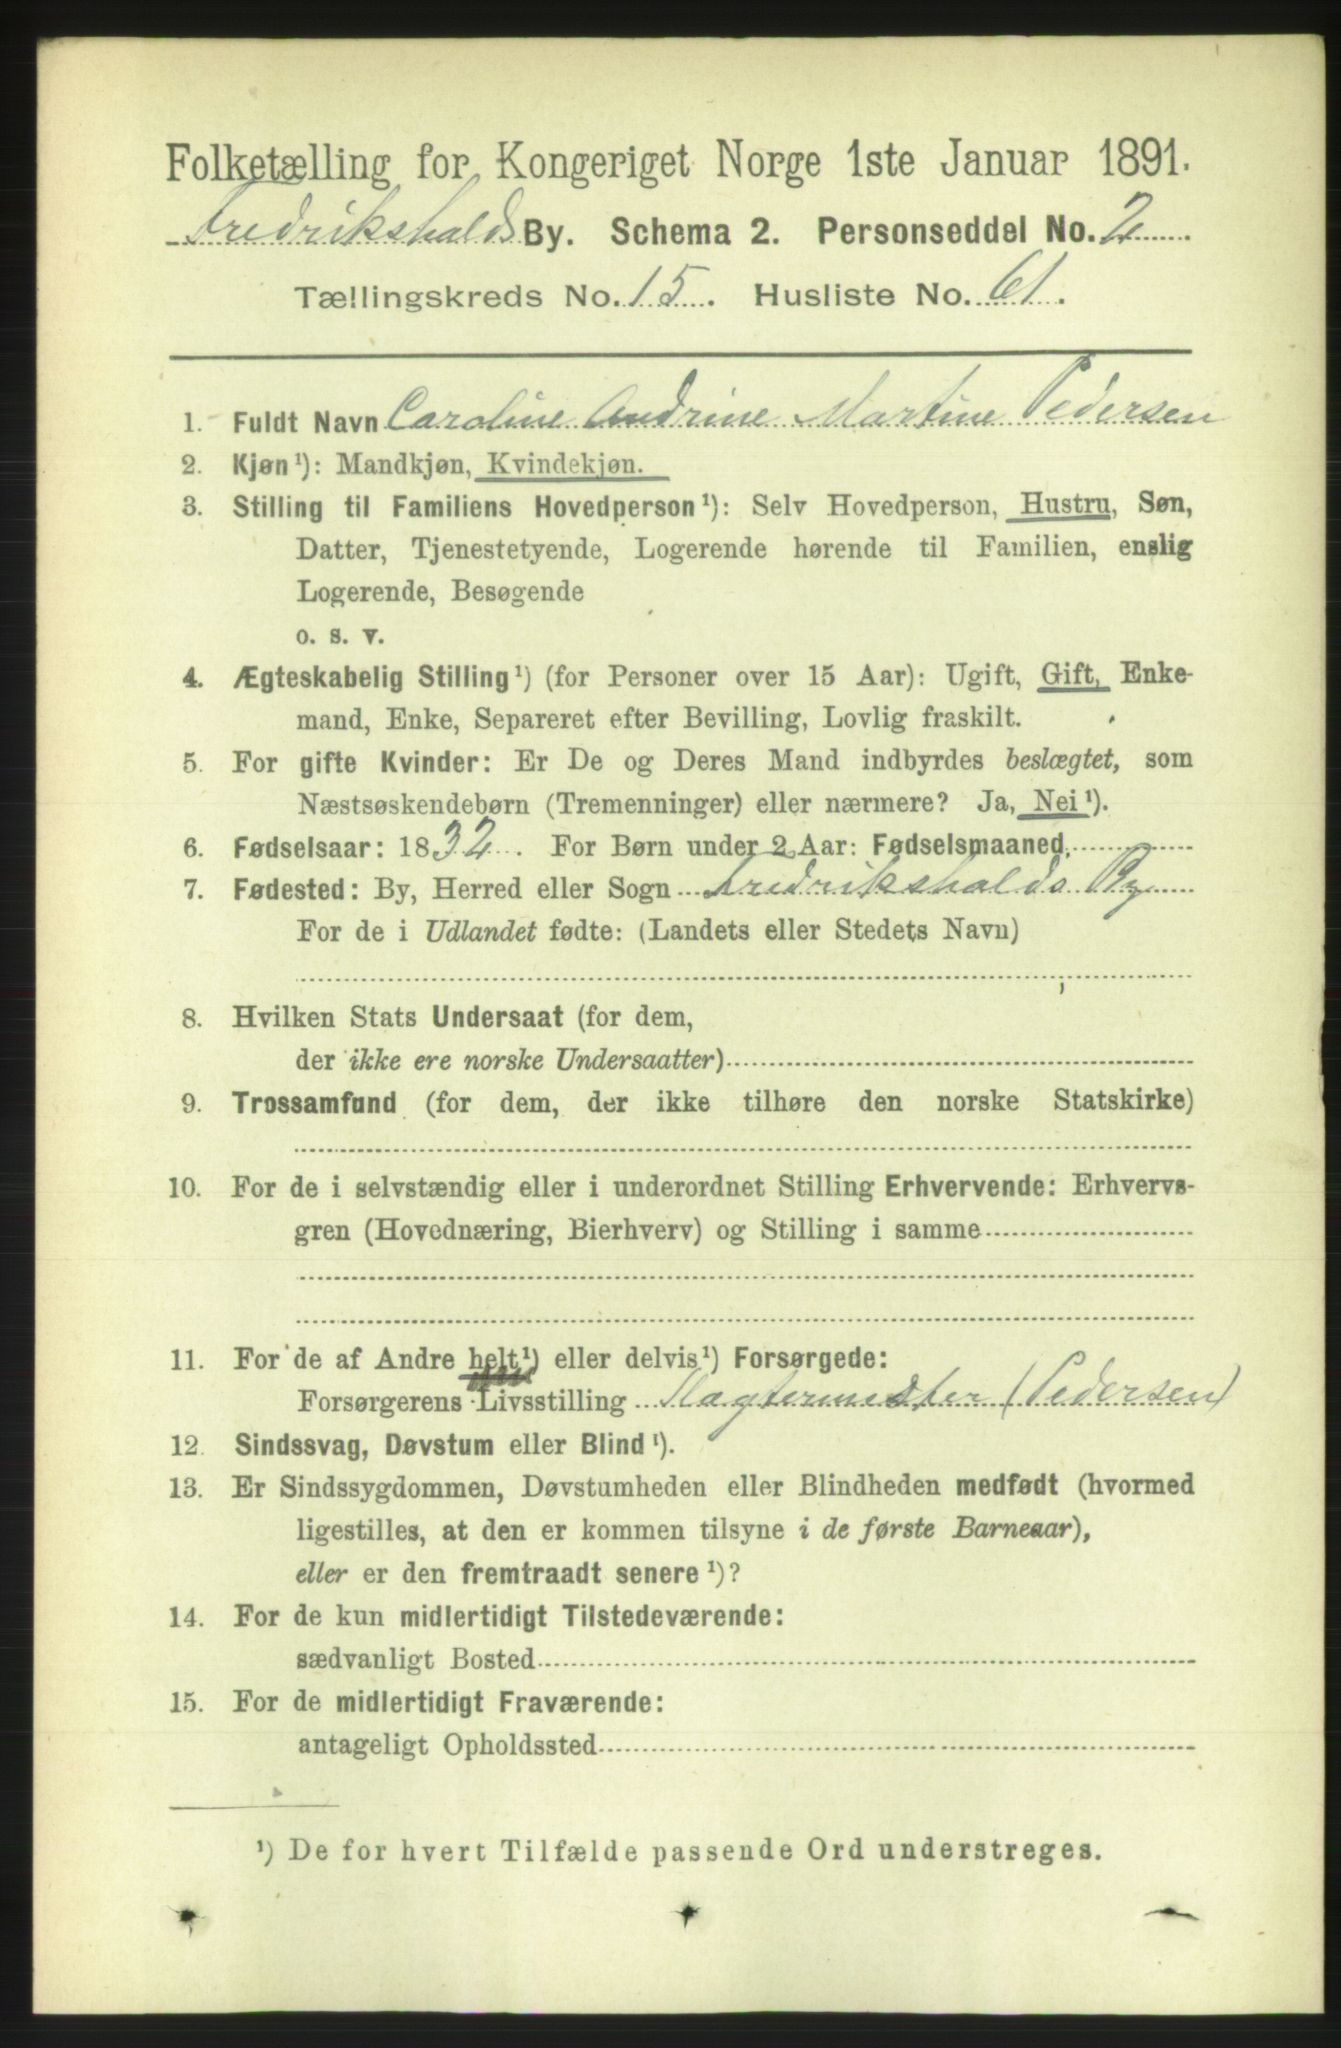 Folketælling for Kongeriget Norge 1ste Januar 1891.
Fredrikshalds By. Schema 2. Personseddel No. 2
Tællingskreds No. 15. Husliste No. 61.
1. Fuldt Navn Caroline Andrine Martine Pedersen
2. Kjøn¹): Mandkjøn, Kvindekjøn.
3. Stilling til Familiens Hovedperson¹): Selv Hovedperson, Hustru, Søn,
Datter, Tjenestetyende, Logerende hørende til Familien, enslig
Logerende, Besøgende
o. s. v.
4. Ægteskabelig Stilling¹) (for Personer over 15 Aar): Ugift, Gift, Enke-
mand, Enke, Separeret efter Bevilling, Lovlig fraskilt.
5. For gifte Kvinder: Er De og Deres Mand indbyrdes beslægtet, som
Næstsøskendebørn (Tremenninger) eller nærmere? Ja, Nei¹).
6. Fødselsaar: 1832. For Børn under 2 Aar: Fødselsmaaned.
7. Fødested: By, Herred eller Sogn Fredrikshalds By
For de i Udlandet fødte: (Landets eller Stedets Navn)
8. Hvilken Stats Undersaat (for dem,
der ikke ere norske Undersaatter)
9. Trossamfund (for dem, der ikke tilhøre den norske Statskirke)
10. For de i selvstændig eller i underordnet Stilling Erhvervende: Erhvervs-
gren (Hovednæring, Bierhverv) og Stilling i samme
11. For de af Andre helt¹) eller delvis¹) Forsørgede:
Forsørgerens Livsstilling Slagtermester (Pedersen)
12. Sindssvag, Døvstum eller Blind¹).
13. Er Sindssygdommen, Døvstumheden eller Blindheden medfødt (hvormed
ligestilles, at den er kommen tilsyne i de første Barneaar),
eller er den fremtraadt senere¹)?
14. For de kun midlertidigt Tilstedeværende:
sædvanligt Bosted
15. For de midlertidigt Fraværende:
antageligt Opholdssted
¹) De for hvert Tilfælde passende Ord understreges.